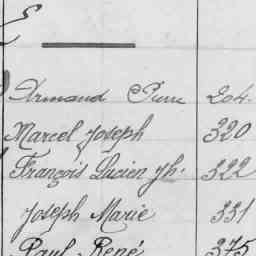 Armand Pierre 204.
Marcel Joseph 320
François Lucien Jh. 322
Joseph Marie 331
Paul René 375